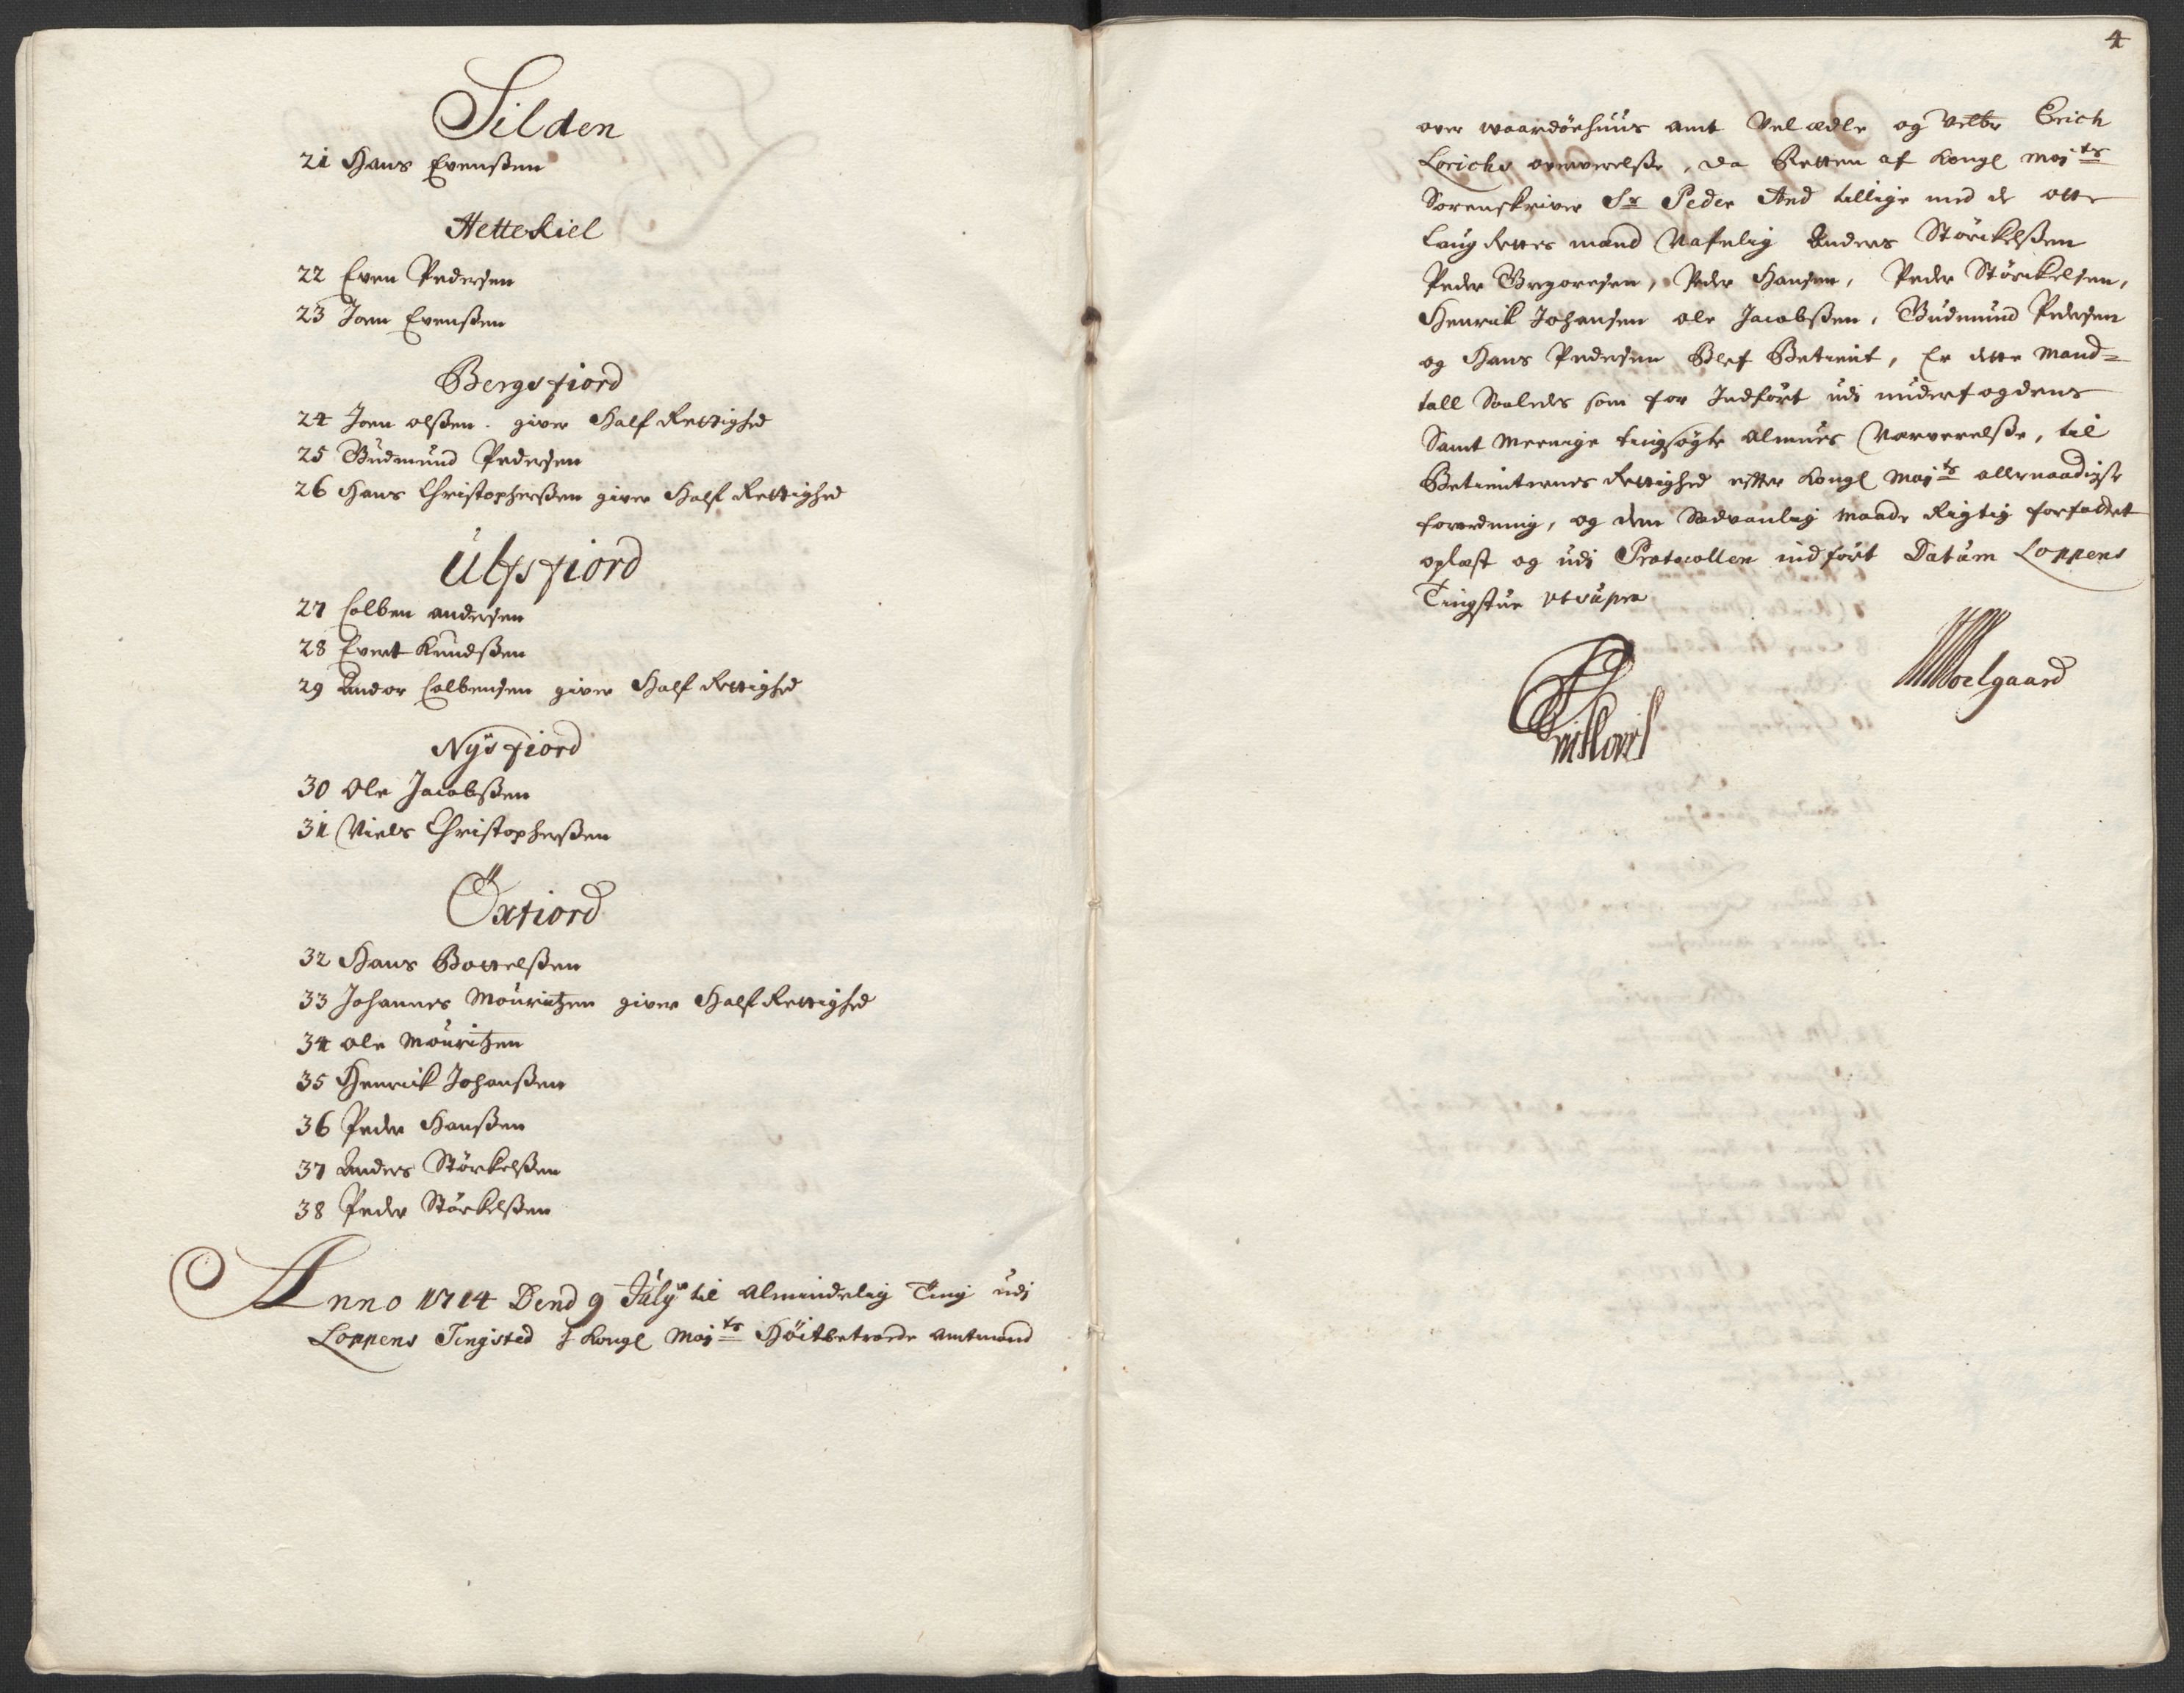 Silden
21 Hans Evenßen
Hettekiel
22 Even Pedersen
23 Joen Evenßen
Bergsfiord
24 Joen olßen. giver Half Rettighed
25 Gudmund Pedersen
26 Hans Christopherßen giver Half Rettighed
Ulfsfiord
27 Colben andersen
28 Evert Knudßen
29 Andor Colbensen giver Half Rettighed
Nysfiord
30 Ole Jacobßen
31 Niels Christopherßen
Öxfiord
32 Hans Bottelßen
33 Johannes Mouritzen giver Half Rettighed
34 Ole Mouritzen
35 Henrick Johanßen
36 Peder Hanßen
37 Anders Störkelßen
38 Peder Störkelßen
Anno 1714 Dend 9 July til Almindelig Ting udi
Loppens Tingsted I Kongl May ts Höitbetroede Amtmand
4
over Waardöehuus Amt Vel ædle og Velbr Erich
Lorichs overværelße, da Retten af Kongl May ts
Sorenskriver Sr Peder And tillige med de otte
Laugrettes mænd Nafnlig Anders Störckelßen
Peder Gregoresen, Peder Hansen, Peder Störckelsen,
Henrik Johansen ole Jacobßen, Gudmund Pedersen
og Hans Pedersen Blef Betient, Er dette Mand=
tall Saaledes som for Indfört udi underfogdens
Samt Meenige tingsögte Almues Nærværelße, til
Betienternes Rettighed efter Kongl May ts allernaadigste
forordning, og dem Sædvanlig Maade Rigtig forfattet
oplæst og udi Protocollen indfört Datum Loppens
Tingstue ut supra